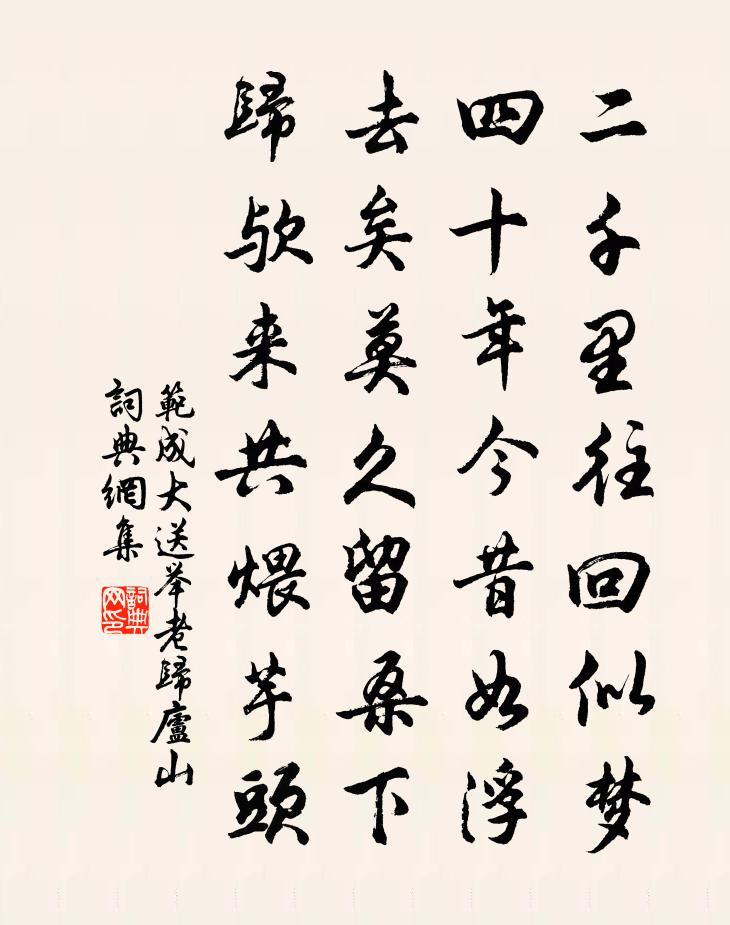 二千里往回似梦
四十年今昔如浮
去矣莫久留桑下
歸欤来共煨芋頭
範成大送举老歸廬山
詞典網集
詞典
网印